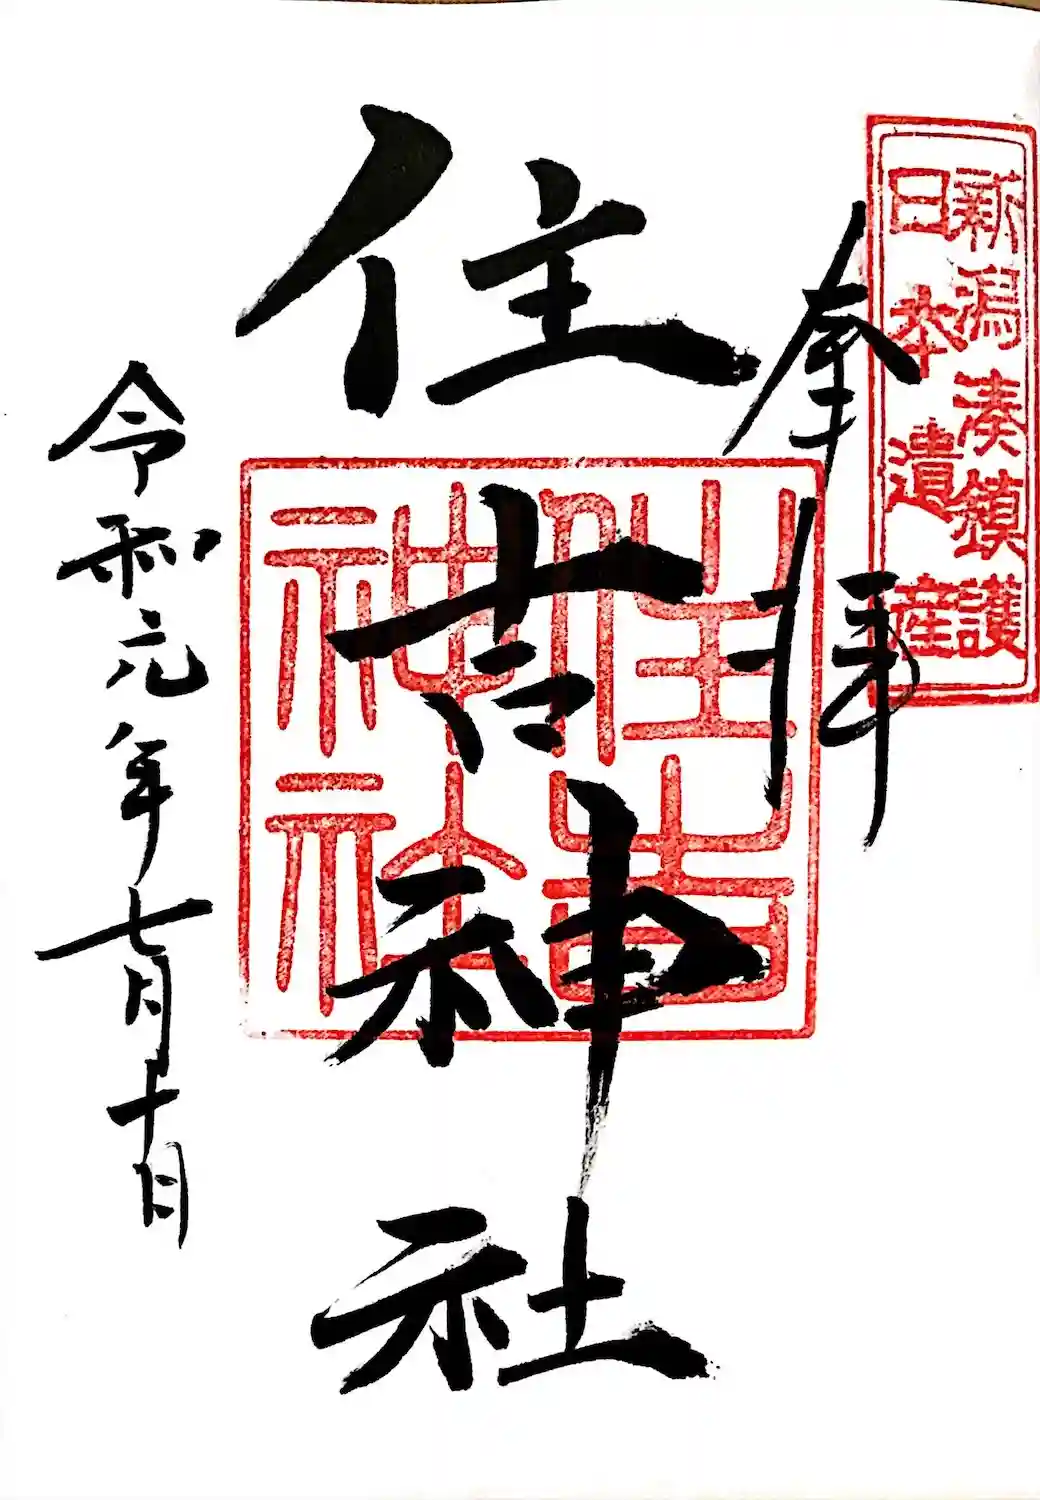 新潟湊鎮護
日本遺産
奉拝
住吉神社
住吉
神社
令和元年七月十日